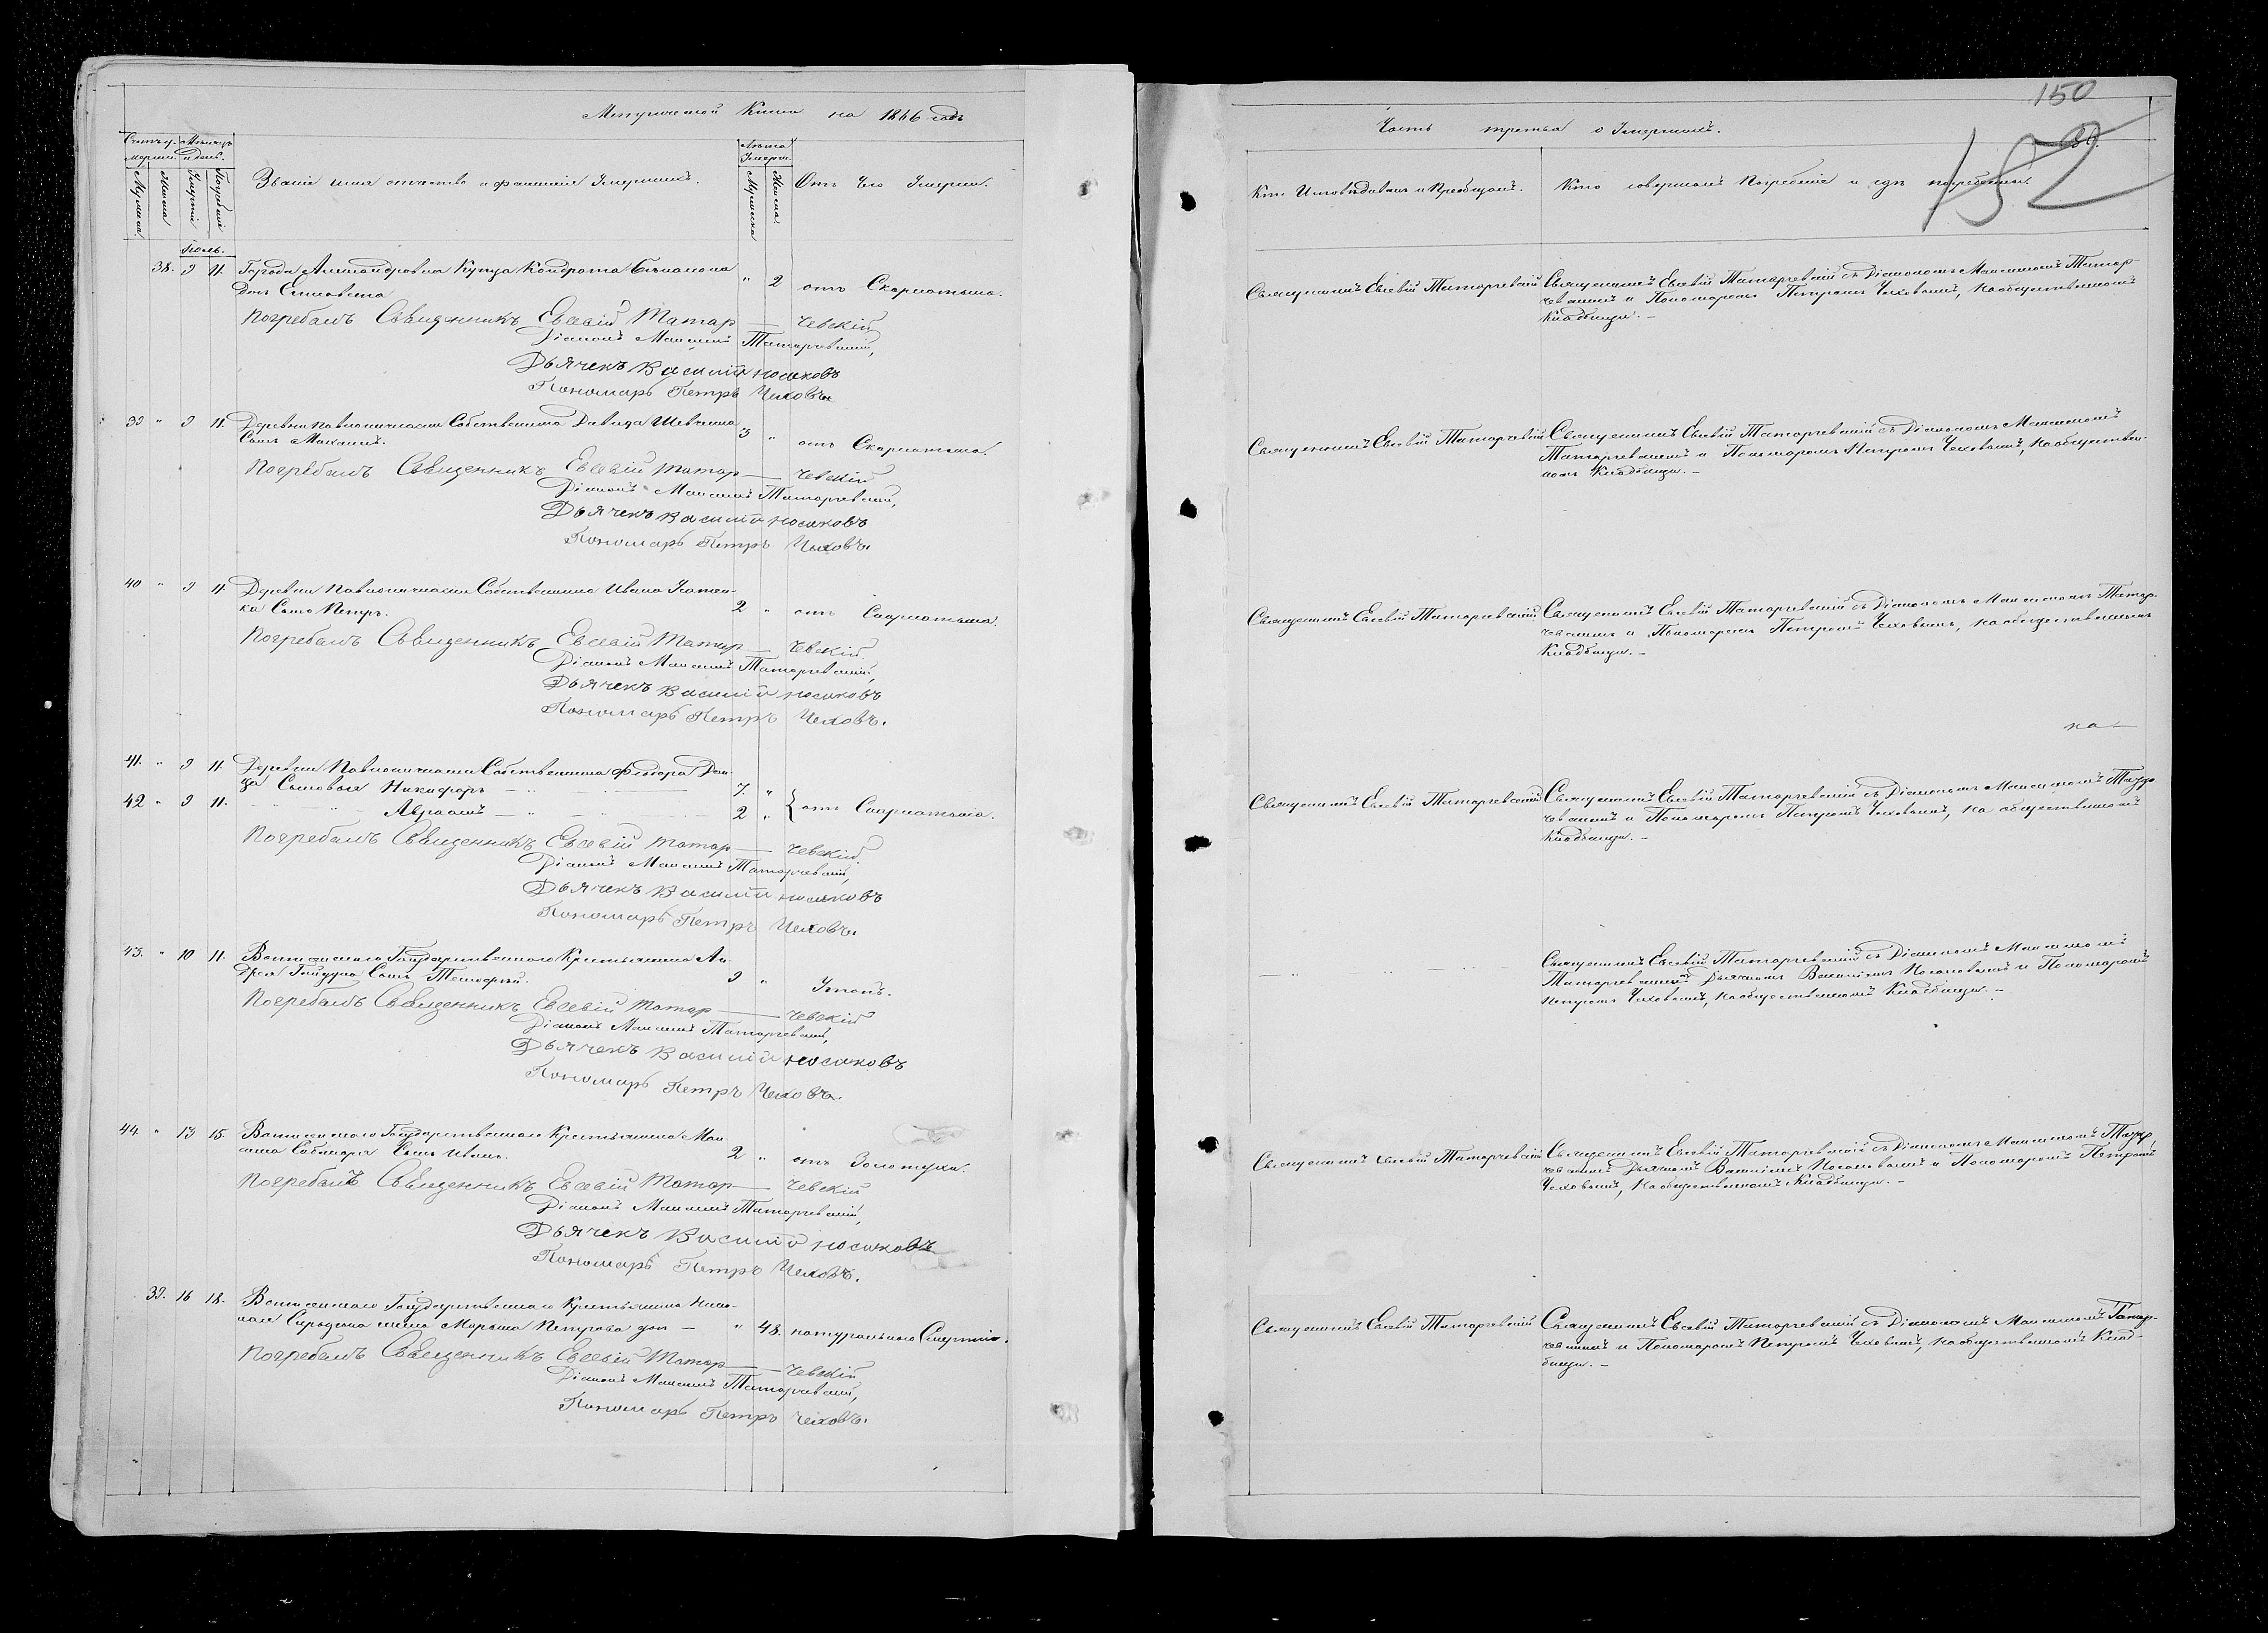 Метрической Книги на 1866 годъ
Счетъ у- Мѣсяцъ
мерши. и день.
Лѣта
Умерш.
Мужеска
Женска
Смерти
Погребенія
Званіе имя отчество и фамилія Умершихъ.
Мужеска
Женска
Отъ чего Умерли.
Іюль.
38. 9 11. Города Александровска Купца Кондрата
Дочь Елисавета " 2 отъ Скарлатины.
Погребалъ Священникъ Евсевій Татар — чевскій
Діаконъ Максимъ Татарчевскій,
Дьячекъ Василій Носаковъ
Пономарь Петръ Чеховъ.
39 " 9 11. Деревни Собственника Давида Шевченка
Сынъ Максимъ. 3 " отъ Скарлатины.
Погребалъ Священникъ Евсевій Татар — чевскій
Діаконъ Максимъ Татарчевскій,
Дьячекъ Василій Носаковъ
Пономарь Петръ Чеховъ.
40 " 9 11. Деревни Собственника Ивана
ка Сынъ Петръ. 2 " отъ Скарлатины.
Погребалъ Священникъ Евсевій Татар — чевскій.
Діаконъ Максимъ Татарчевскій,
Дьячекъ Василій Носаковъ
Пономарь Петръ Чеховъ.
41. " 9 11. Деревни Собственника Феодора
Сыновья Никифоръ 7. "
42 " 9 11. Авраамъ 2 " отъ Скарлатины.
Погребалъ Священникъ Евсевій Татар — чевскій.
Діаконъ Максимъ Татарчевскій,
Дьячекъ Василій Носаковъ
Пономарь Петръ Чеховъ.
43. " 10 11. Государственнаго Крестьянина Ан-
дрея Сынъ Тимофей. 9 " Утопъ.
Погребалъ Священникъ Евсевій Татар — чевскій
Діаконъ Максимъ Татарчевскій,
Дьячекъ Василій Носаковъ
Пономарь Петръ Чеховъ.
44. " 13 15. Государственнаго Крестьянина Мак
сима Сынъ Иванъ. 2 " отъ Золотухи.
Погребалъ Священникъ Евсевій Татар — чевскій
Діаконъ Максимъ Татарчевскій,
Дьячекъ Василій Носаковъ
Пономарь Петръ Чеховъ.
39. 16 18. Государственнаго Крестьянина Нико-
лая жена Марѳа Петрова " 48. натуральною Смертію.
Погребалъ Священникъ Евсевій Татар — чевскій
Діаконъ Максимъ Татарчевскій,
Пономарь Петръ Чеховъ.
150
152
Часть третья о Умершихъ.
Кто Исповѣдывалъ и Пріобщалъ. Кто совершалъ Погребеніе и гдѣ погребены.
Священникъ Евсевій Татарчевскій Священникъ Евсевій Татарчевскій съ Діакономъ Максимомъ Татар-
чевскимъ и Пономаремъ Петромъ Чеховымъ, на общественномъ
Кладбищи. –
Священникъ Евсевій Татарчевскій Священникъ Евсевій Татарчевскій съ Діакономъ Максимомъ
Татарчевскимъ и Пономаремъ Петромъ Чеховымъ, на обществен-
номъ Кладбищи. –
Священникъ Евсевій Татарчевскій Священникъ Евсевій Татарчевскій съ Діакономъ Максимомъ Татар-
чевскимъ и Пономаремъ Петромъ Чеховымъ, на общественномъ
Кладбищи. –
на
Священникъ Евсевій Татарчевскій Священникъ Евсевій Татарчевскій съ Діакономъ Максимомъ Татар-
чевскимъ и Пономаремъ Петромъ Чеховымъ, на общественномъ
Кладбищи. –
Священникъ Евсевій Татарчевскій съ Діакономъ Максимомъ
Татарчевскимъ Дьячкомъ Василіемъ Носаковымъ и Пономаремъ
Петромъ Чеховымъ, на общественномъ Кладбищи. –
Священникъ Евсевій Татарчевскій Священникъ Евсевій Татарчевскій съ Діакономъ Максимомъ Татар-
чевскимъ Дьячкомъ Василіемъ Носаковымъ и Пономаремъ Петромъ
Чеховымъ, на общественномъ Кладбищи. –
Священникъ Евсевій Татарчевскій Священникъ Евсевій Татарчевскій съ Діакономъ Максимомъ Татар-
чевскимъ и Пономаремъ Петромъ Чеховымъ, на общественномъ Клад-
бищи. –